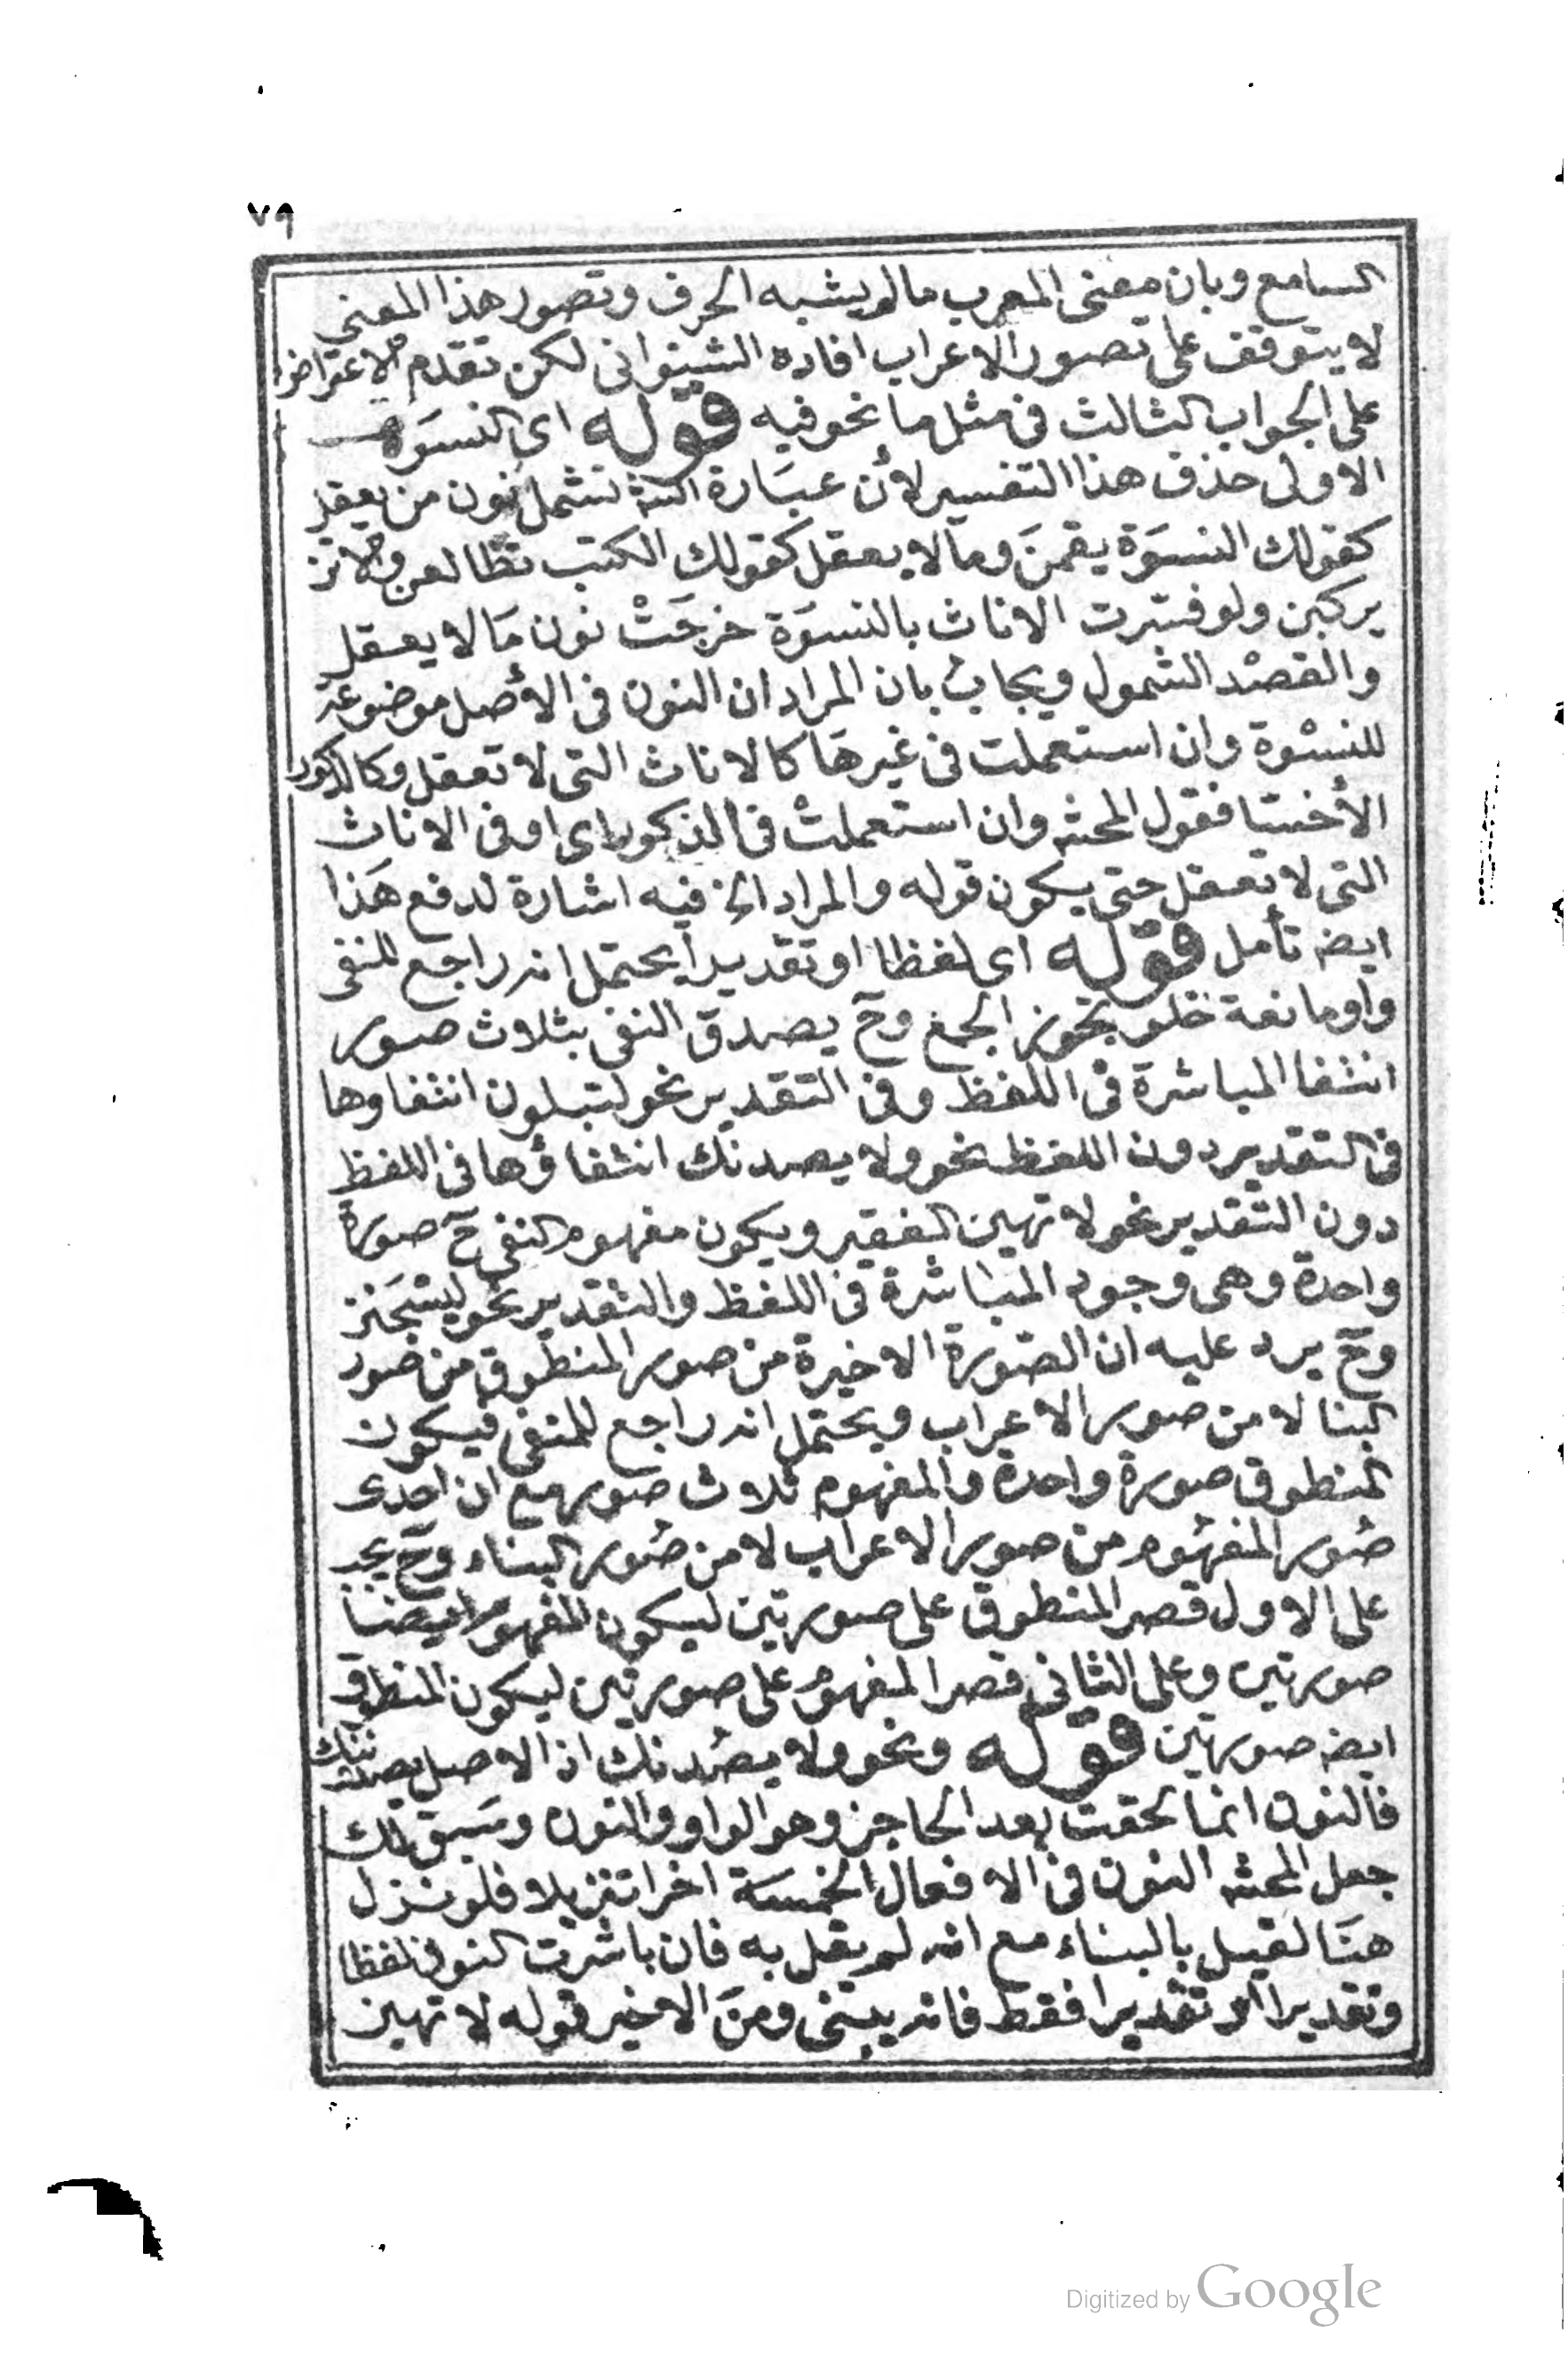 ٧٩
السامع وبان معنى المعرب مالم يشبه الحرف وتصور هذا المعنى
لا يتوقف على تصور الاعراب افاده الشنوانى لكن تقدم الاعتراض
على الجواب الثالث فى مثل ما نحو فيه قوله اى النسوة
الاولى حذف هذا التفسير لأن عبَارة الش تشمل نون من يعقل
كقولك النسوَة يقمنَ وما لا يعقل كقولك الكتب تظالعن
يركبن ولو فسّرت الاناث بالنسوَة خرجَتْ نون مَا لا يعقل
والقصْد الشمول ويجابُ بان المراد ان النون فى الأصل موضوعة
للنسْوة وان استعملت فى غيرهَا كالاناث التى لا تعقل وكالذكور
الأخستا فقول المحشى وان استعملتْ فى الذكور اى او فى الاناث
التى لا تعقل حتى يكون قوله والمراد الخ فيه اشارة لدفع هَذا
ايضـ تأمل قوله اى لفظا او تقديرا يحتمل انه راجع للنفى
واو مانعة خلو تجوز الجمع وحٓ يصدق النفى بثلاث صور
انتفا المباشرة فى اللفظ وفى التقدير نحو لتبلون انتفاوها
فى التقدير دون اللفظ نحو ولا يصدنك انتفاؤها فى اللفظ
دون التقدير نحو لا تهين الفقير ويكون مفهوم النفى حٓ صورة
واحدة وهى وجود المبَاشرة فى اللفظ والتقدير نحو ليسْجَنن
وحٓ يرد عليه ان الصّورة الاخيرة من صور المنطوق من صور
البنا لا من صور الاعراب ويحتمل انه راجع للمنفى فيكون
المنطوق صورة واحدة والمفهوم ثلاث صور مع ان احدى
صُور المفهُوم من صور الاعراب لا من صُور البناء وحٓ يجب
على الاول قصر المنطوق على صورتين ليكون المفهوم ايضا
صورتين وعلى الثانى قصر المفهوم على صورتين ليكون المنطوق
ايضـ صورتين قوله ونحو ولا يصُدنك اذ الاصل يصدوننك
فالنون انما لحقت بعد الحاجز وهو الواو والنون وسَبق لك
جعل المحشى النون فى الافعال الخمسَة اخرا تنزيلا فلو نزل
هنَا لقيل بالبناء مع انه لم يقل به فان باشرت النون لفظا
وتقديرا او تقديرا فقط فانه يبنى ومنَ الاخير قوله لا تهين
Digitized by Google